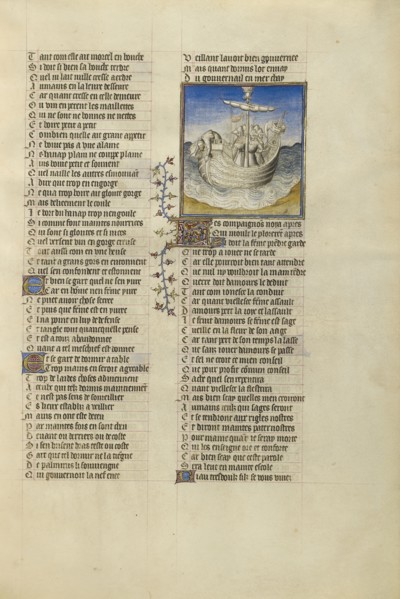 Tant com elle ait morcel en bouche
Si doit si bien sa bouche terdre
Quel ni lait nulle gresse aerdre
Aumains en la leure desseure
Car quant gresse en elle demeure
Ou vin en perent les maillettes
Qui ne sont ne bonnes ne nettes
Et boiue petit a petit
Combien quelle ait grant appetit
Ne boiue pas a vne alaine
Ne hanap plain ne couppe plaine
Ains boiue petit et souuent
Quel naille les autres esmouuant
A dire que trop en engorge
Ne que trop boiue a gloute gorge
Mais deliement le coule
Le bort du hanap trop nengoule
Si comme font maintes nourrices
Qui sont si gloutes et si nices
Quel versent vin en gorge creuse
Tout ainsi com en vne heuse
Et tant a grans gors en entonnent
Quel sen confondent et estonnent
Et bien se gart quel ne sen yure
Car en homme nen femme yure
Ne puet auoir chose secree
Et puis que femme est en yuree
Il na point en lui de deffense
Et iangle tout quanquelle pense
Et est a tous abandonnee
Quant a tel meschief est donnee
Et se gart de dormir a table
Trop mains en seroit agreable
Trop de laides choses aduiennent
A ceulx qui telz dormirs maintiennent
Ce nest pas sens de someillier
Es lieux establis a veillier
Maint en ont este deceu
Par maintes fois en sont cheu
Deuant ou derriere ou de coste
Si sen brisent bras teste ou coste
Gart que tel dormir ne la tiegne
De palinurus li souuiengne
Qui gouuernoit la nef enee
Veillant lauoit bien gouuernee
Mais quant dormir lot enuay
Du gouuernail en mer chay
Des compaignons noia apres
Qui moult le plorerent apres
Si doit la femme prendre garde
Que trop a iouer ne se tarde
Car elle pourroit bien tant attendre
Que nul ny vouldroit la main tendre
Querre doit damours le deduit
Tant com ieunesce la conduit
Car quant vieillesce femme assault
Damours pert la ioie et lassault
Le fruit damours se femme est sage
Cueille en la fleur de son aage
Car tant pert de son temps la lasse
Que sans iouer damours se passe
Et sel ne croit ce mien conseil
Que pour proffit commun conseil
Sache quel sen repentira
Quant vieillesce la flestrira
Mais bien say quelles men croiront
Aumains ceulx qui sages seront
Et se tendront aux rigles nostres
Et diront maintes paternostres
Pour mame quant ie seray morte
Qui les enseigne ore et conforte
Car bien say que ceste parole
Sera leue en mainte escole
Biau tresdoulz filz se vous viuez